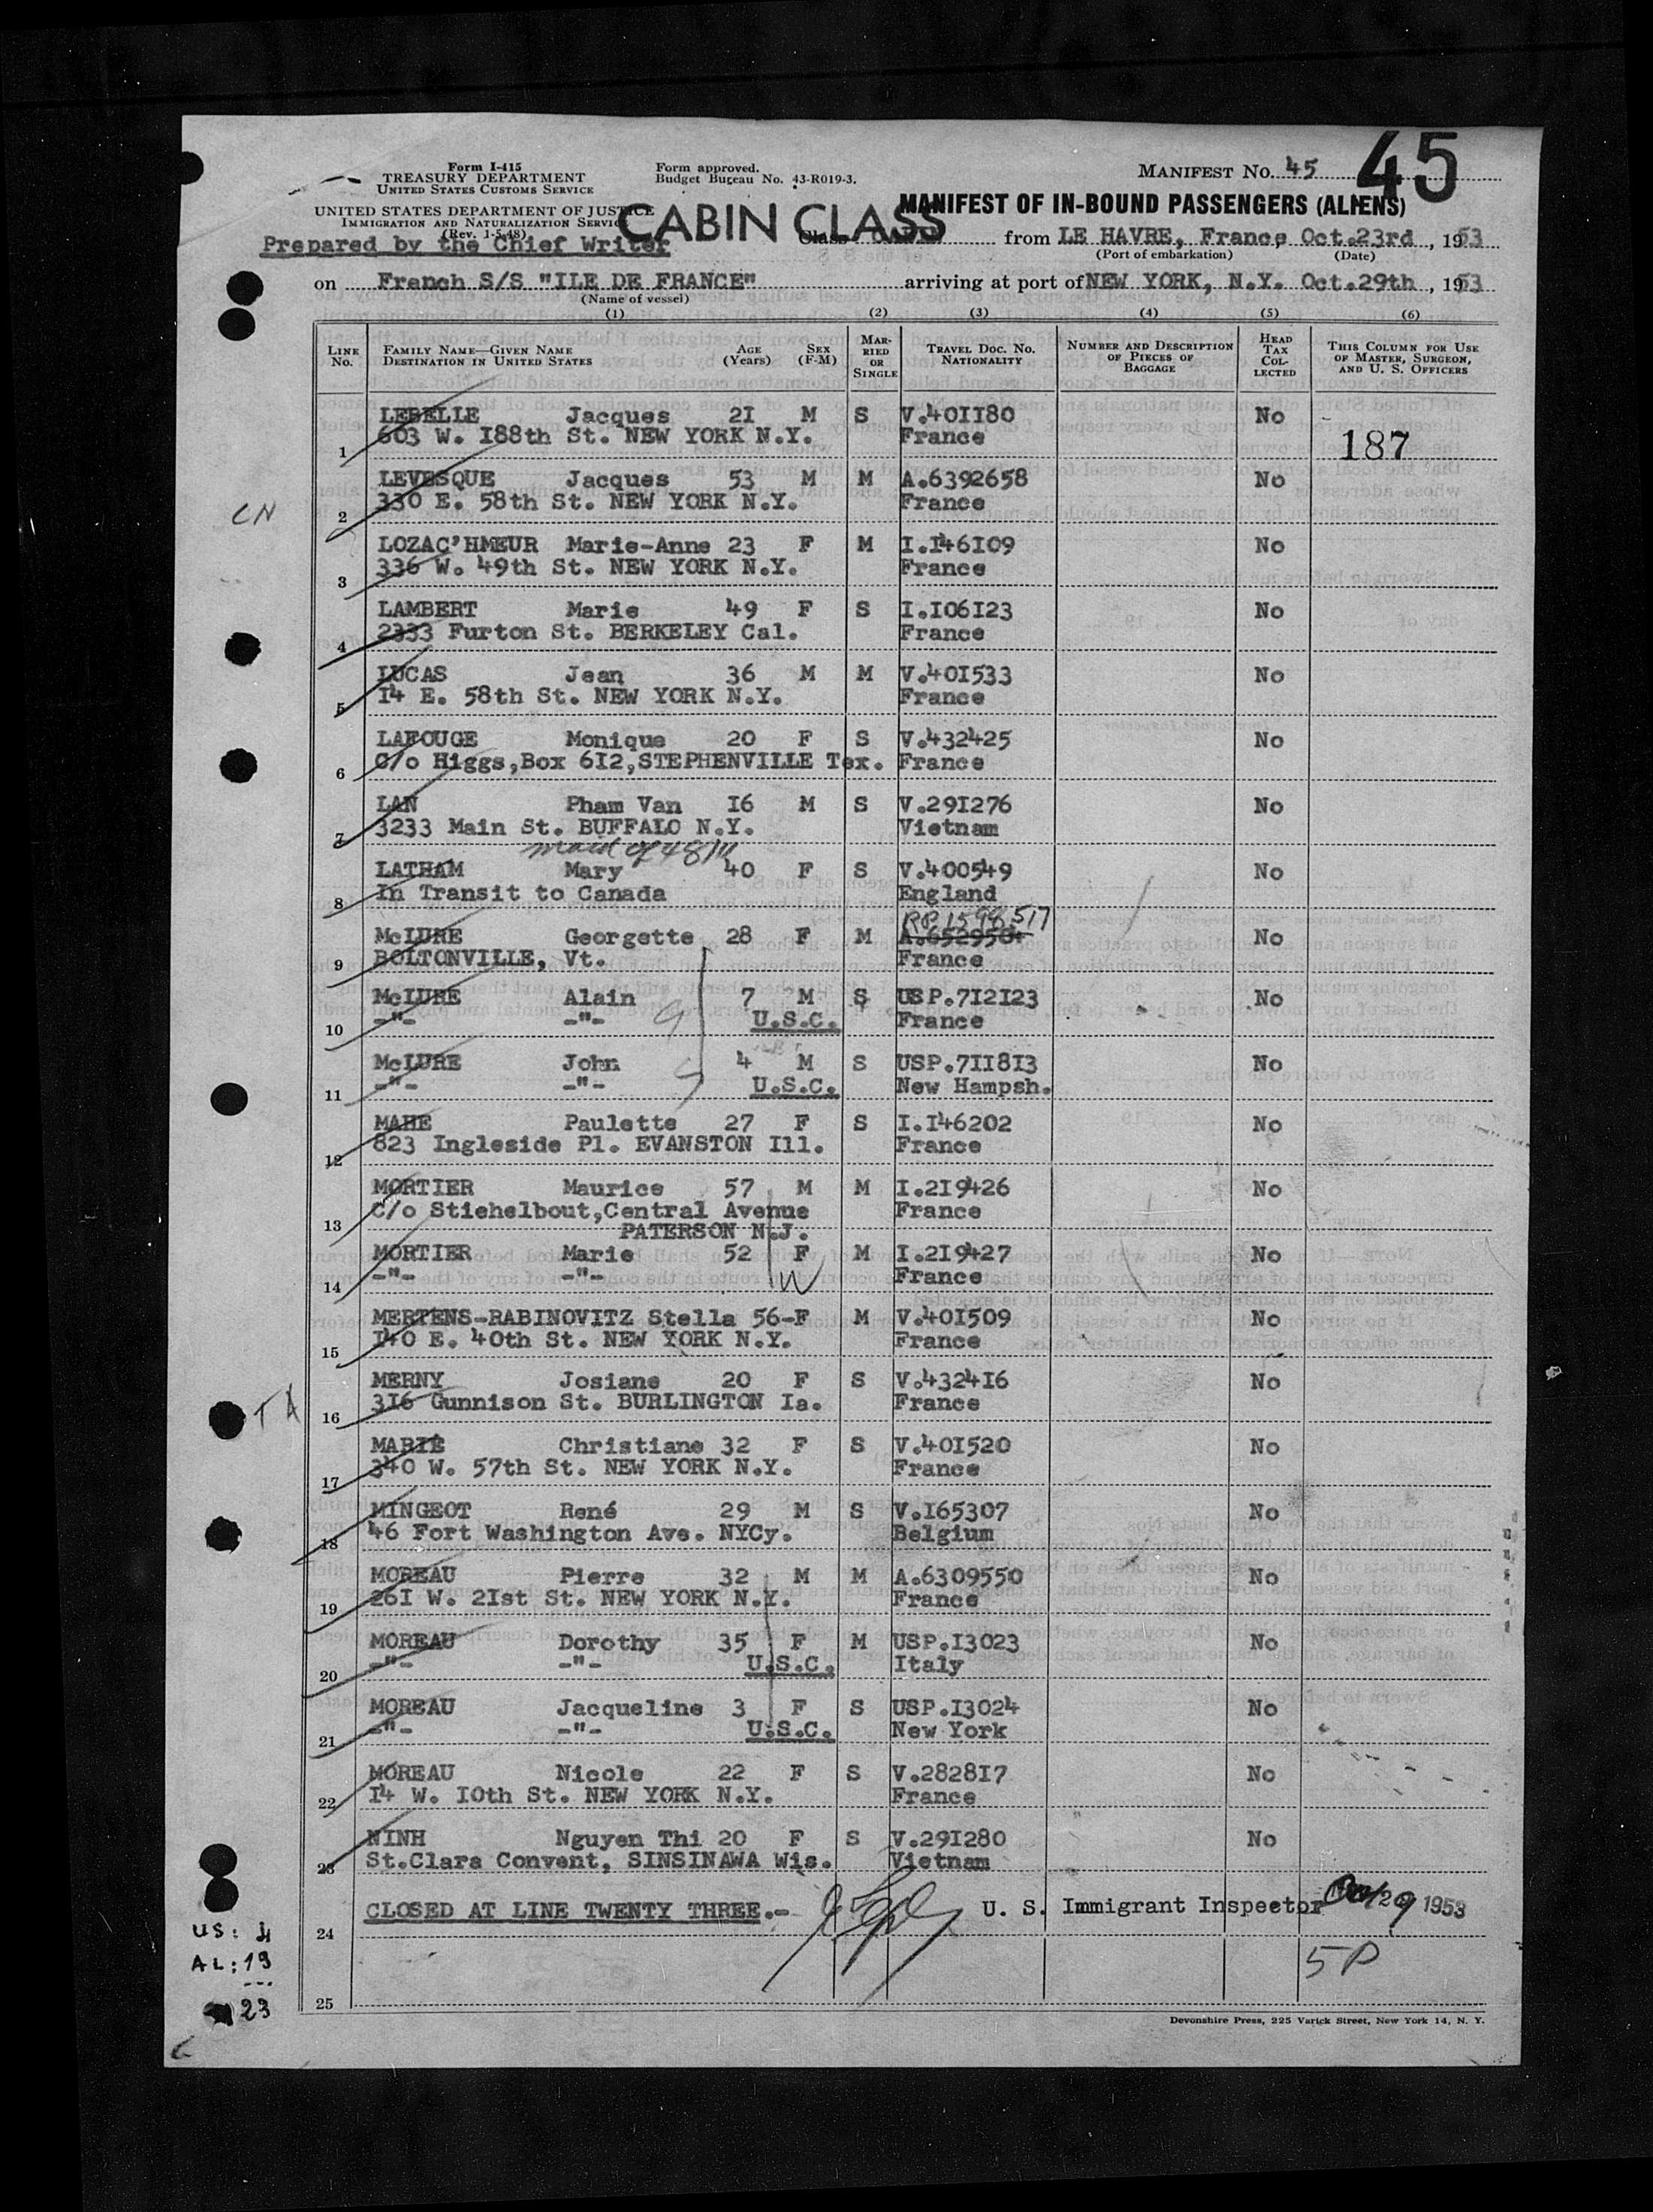 Form I-415
TREASURY DEPARTMENT
UNITED STATES CUSTOMS SERVICE
Form approved.
Budget Bureau No. 43-R019-3.
MANIFEST No. 45
45
UNITED STATES DEPARTMENT OF JUSTICE
IMMIGRATION AND NATURALIZATION SERVICE
(Rev. 1-5-48)
MANIFEST OF IN-BOUND PASSENGERS (ALIENS)
CABIN CLASS
Prepared by the Chief Writer
Class from LE HAVRE, France, Oct.23rd, 1953
(Port of embarkation) (Date)
on French S/S "ILE DE FRANCE" arriving at port of NEW YORK, N.Y. Oct.29th, 1953
(Name of vessel)
(1) (2) (3) (4) (5) (6)
LINE No. FAMILY NAME—GIVEN NAME DESTINATION IN UNITED STATES AGE (Years) SEX (F-M) MARRIED OR SINGLE TRAVEL DOC. No. NATIONALITY NUMBER AND DESCRIPTION OF PIECES OF BAGGAGE HEAD TAX COLLECTED THIS COLUMN FOR USE OF MASTER, SURGEON, AND U. S. OFFICERS
LEBELLE Jacques 21 M S V.401180 No
1 603 W. 188th St. NEW YORK N.Y. France 187
LEVESQUE Jacques 53 M M A.6392658 No
CN 2 330 E. 58th St. NEW YORK N.Y. France
LOZAC'HMEUR Marie-Anne 23 F M I.146109 No
3 336 W. 49th St. NEW YORK N.Y. France
LAMBERT Marie 49 F S I.106123 No
4 2333 Furton St. BERKELEY Cal. France
LUCAS Jean 36 M M V.401533 No
5 14 E. 58th St. NEW YORK N.Y. France
LAFOUGE Monique 20 F S V.432425 No
6 C/o Higgs,Box 612,STEPHENVILLE Tex. France
LAN Pham Van 16 M S V.291276 No
7 3233 Main St. BUFFALO N.Y. Vietnam
maid of
LATHAM Mary 40 F S V.400549 No
8 In Transit to Canada England
RP.1598517
McLURE Georgette 28 F M A.652958. No
9 BOLTONVILLE, Vt. France
McLURE Alain 7 M S USP.712123 No
10 -"- -"- U.S.C. France
McLURE John 4 M S USP.711813 No
11 -"- -"- U.S.C. New Hampsh.
MAHE Paulette 27 F S I.146202 No
12 823 Ingleside Pl. EVANSTON Ill. France
MORTIER Maurice 57 M M I.219426 No
13 C/o Stiehelbout,Central Avenue France
PATERSON N.J.
MORTIER Marie 52 F M I.219427 No
14 -"- -"- W France
MERTENS-RABINOVITZ Stella 56-F M V.401509 No
15 140 E. 40th St. NEW YORK N.Y. France
MERNY Josiane 20 F S V.432416 No
16 316 Gunnison St. BURLINGTON Ia. France
MARIE Christiane 32 F S V.401520 No
17 340 W. 57th St. NEW YORK N.Y. France
MINGEOT René 29 M S V.165307 No
18 46 Fort Washington Ave. NYCy. Belgium
MOREAU Pierre 32 M M A.6309550 No
19 261 W. 21st St. NEW YORK N.Y. France
MOREAU Dorothy 35 F M USP.13023 No
20 -"- -"- U.S.C. Italy
MOREAU Jacqueline 3 F S USP.13024 No
21 -"- -"- U.S.C. New York
MOREAU Nicole 22 F S V.282817 No
22 14 W. 10th St. NEW YORK N.Y. France
NINH Nguyen Thi 20 F S V.291280 No
23 St.Clara Convent, SINSINAWA Wis. Vietnam
24 CLOSED AT LINE TWENTY THREE.- U. S. Immigrant Inspector Oct 29 1953
US: 4
AL: 19
23
5P
25
Devonshire Press, 225 Varick Street, New York 14, N. Y.